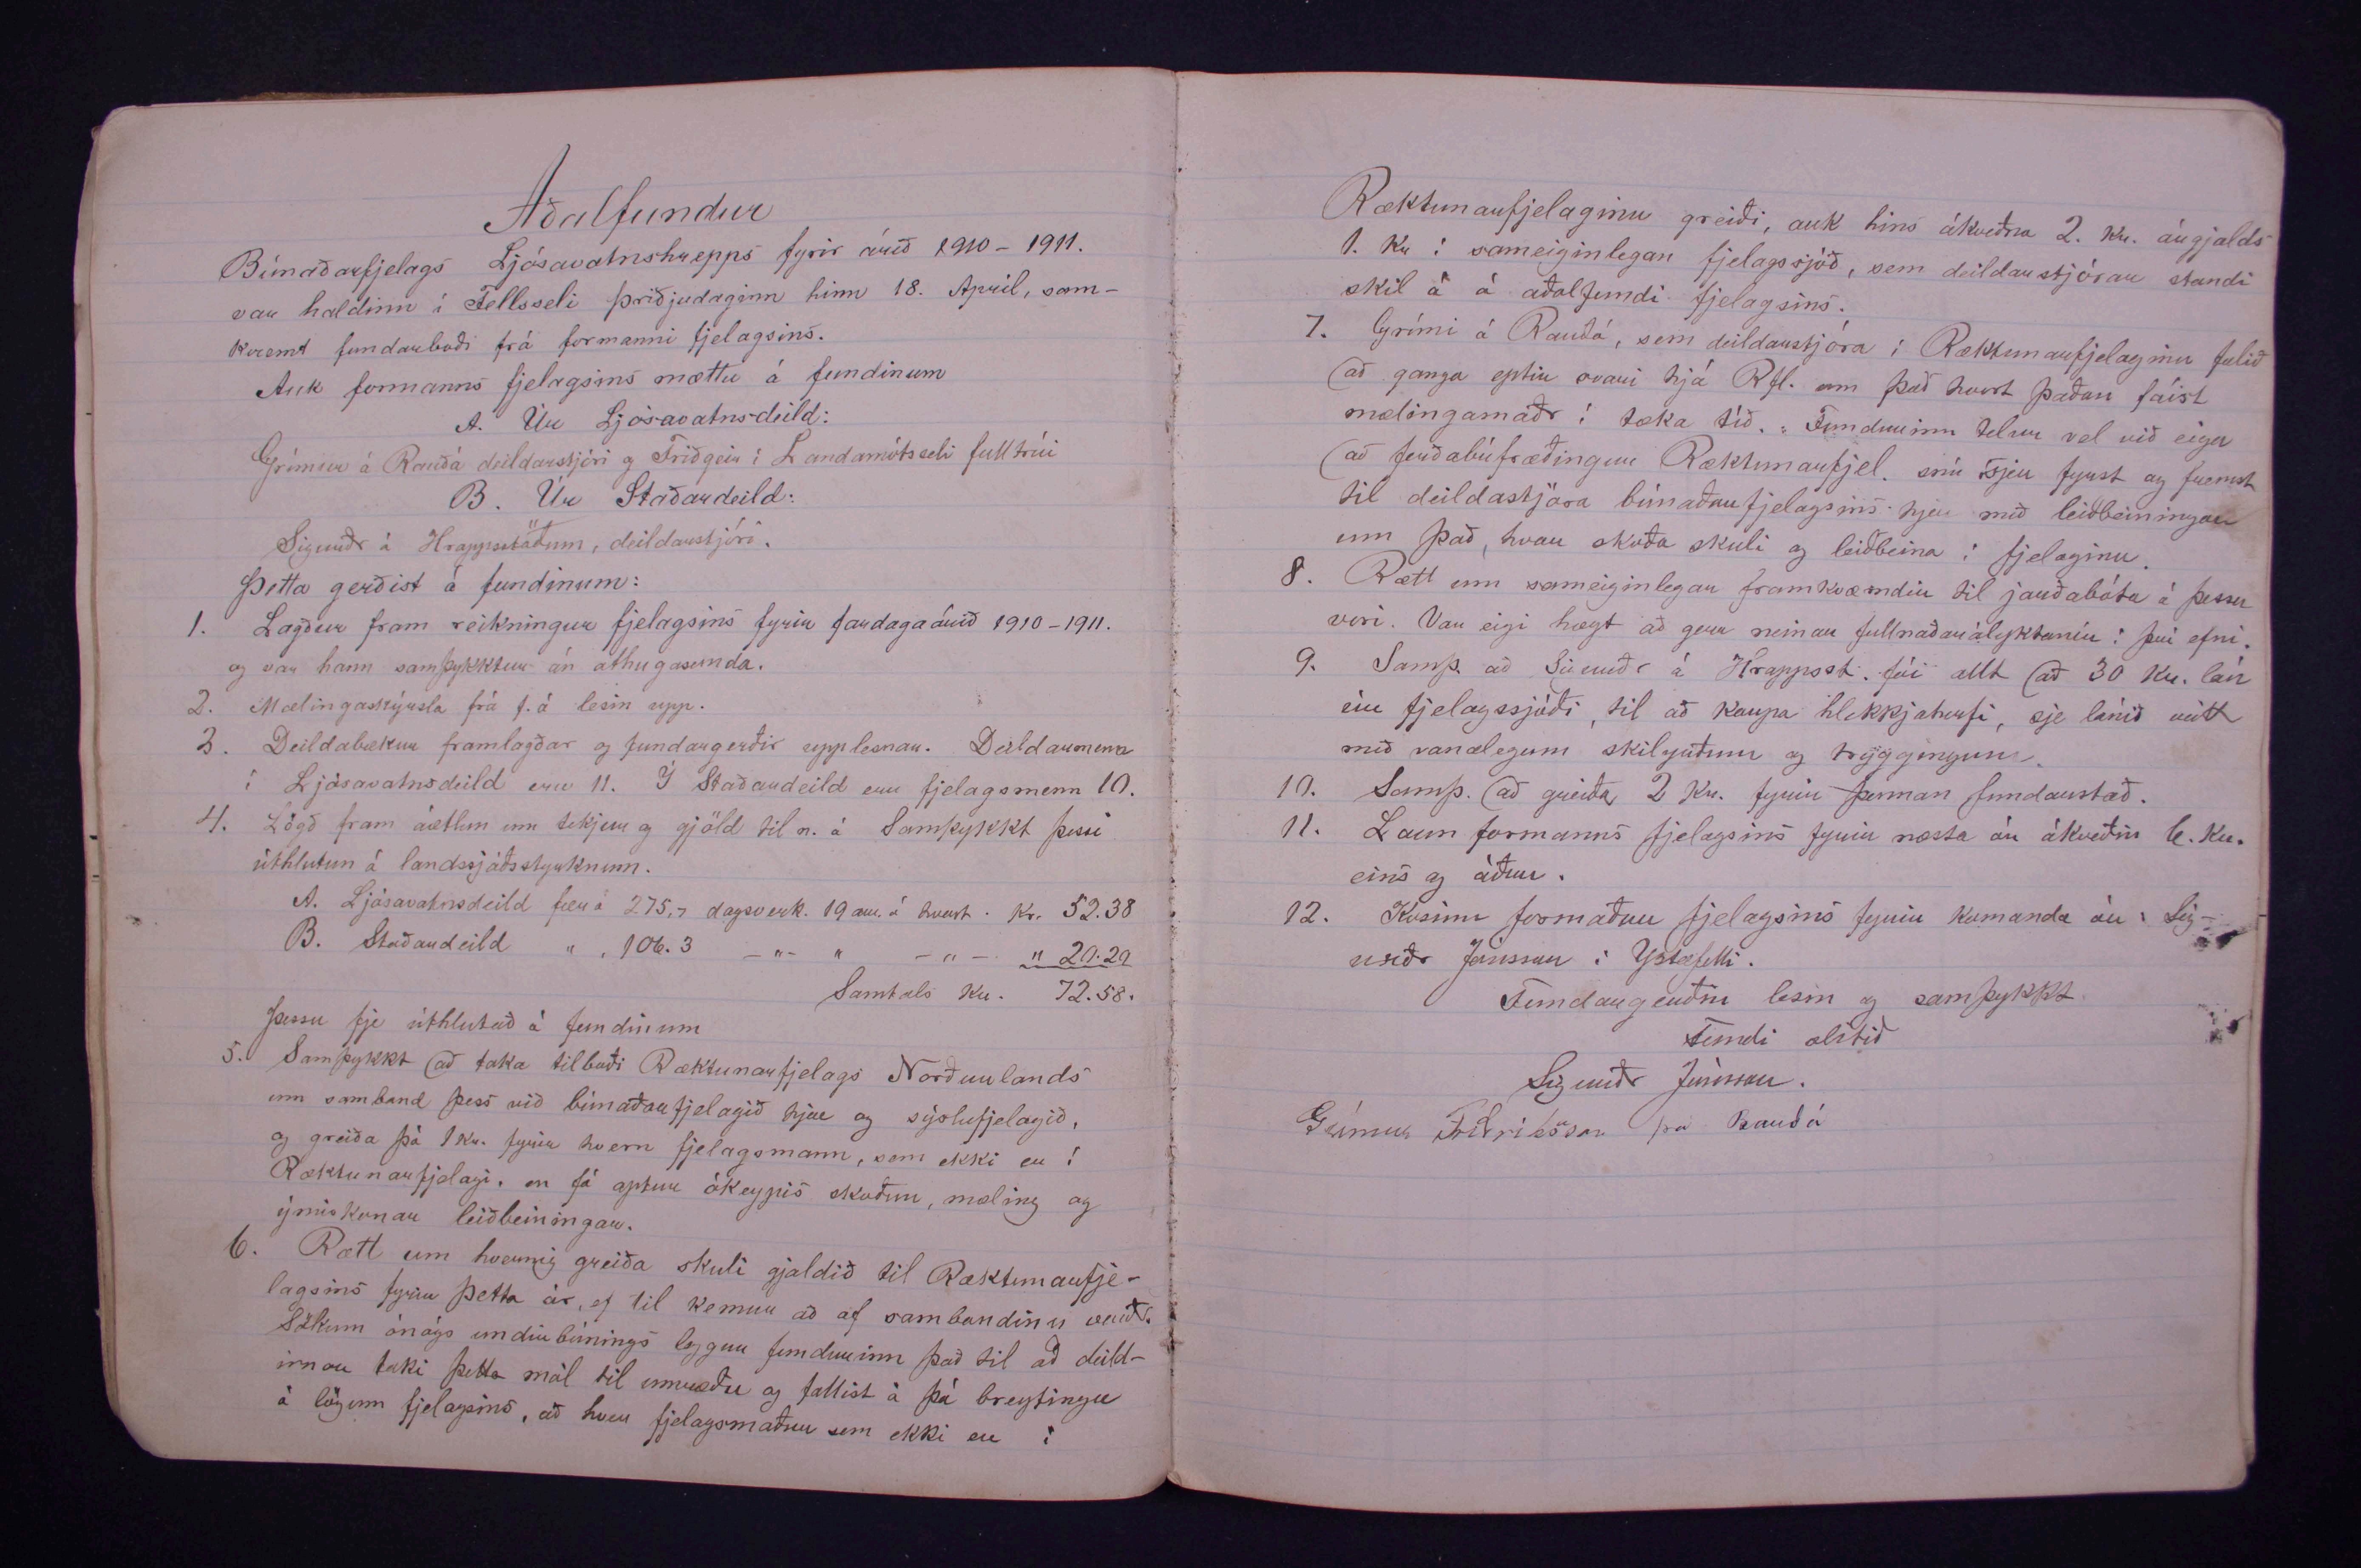 Aðalfundur
Búnaðarfjelags Ljósavatnshrepps fyrir árið 1910 - 1911.
var haldinn í Fellsseli þriðjudaginn hinn 18. Apríl, sam-
kvæmt fundarboði frá formanni fjelagsins.
Auk formanns fjelagsins mættu á fundinum
A. Úr Ljósavatnsdeild:
Grímur á Rauðá deildarstjóri og Friðgeir í Landamótsseli fulltrúi
B. Úr Staðardeild:
Sigurðr á Hrappsstöðum, deildarstjóri.
Þetta gerðist á fundinum:
1. Lagður fram reikningur fjelagsins fyrir fardagaárið 1910 - 1911.
og var hann samþykktur án athugasemda.
2. Mælingaskýrsla frá f. á lesin upp.
3. Deildabækur framlagðar og fundargerðir upplesnar. Deildarmenn
í Ljósavatnsdeild eru 11. Í Staðardeild eru fjelagsmenn 10.
4. Lögð fram áætlun um tekjur og gjöld til n. á Samþykkt þessi
úthlutun á landssjóðsstyrknum.
A. Ljósavatnsdeild fær á 275,7 dagsverk. 19 aur. á hvert. Kr. 52.38
B. Staðardeild " . 106.3 - " - " - " - " 20.20
Samtals Kr. 72.58.
Þessu fje úthlutað á fundinum
5. Samþykkt að taka tilboði Ræktunarfjelags Norðurlands
um samband þess við búnaðarfjelagið hjer og sýslufjelagið,
og greiða þá 1 kr. fyrir hvern fjelagsmann, sem ekki er í
Ræktunarfjelagi, en fá aptur ókeypis skoðun, mæling og
ýmiskonar leiðbeiningar.
6. Rætt um hvernig greiða skuli gjaldið til Ræktunarfje-
lagsins fyrir þetta ár, ef til kemur að af sambandinu verði.
Sökum ónógs undirbúnings leggur fundurinn það til að deild-
irnar taki þetta mál til umræðu og fallist á þá breytingu
á lögum fjelagsins, að hver fjelagsmaður sem ekki er í
Ræktunarfjelaginu greiði, auk hins ákveðna 2. kr. árgjalds
1. Kr í sameiginlegan fjelagssjóð, sem deildarstjórar standi
skil á á aðalfundi fjelagsins.
7. Grími á Rauðá, sem deildarstjóra í Ræktunarfjelaginu falið
að ganga eptir svari hjá Rfl. um það hvort þaðan fáist
mælingamaðr í tæka tíð. Fundurinn telur vel við eiga
að ferðabúfræðingur Ræktunarfjel. snúi sjer fyrst og fremst
til deildastjóra búnaðarfjelagsins hjer með leiðbeiningar
um það, hvar skoða skuli og leiðbeina í fjelaginu.
8. Rætt um sameiginlegar framkvæmdir til jarðabóta á þessu
vori. Var eigi hægt að gera neinar fullnaðarályktanir í því efni.
9. Samþ. að Sigurðr á Hrappsst. fái allt að 30 Kr. lán
úr fjelagssjóði, til að kaupa hlekkjaherfi, sje lánið veitt
með vanalegum skilyrðum og tryggingum.
10. Samþ. að greiða 2 Kr. fyrir þennan fundarstað.
11. Laun formanns fjelagsins fyrir næsta ár ákveðin 6. Kr.
eins og áður.
12. Kosinn formaður fjelagsins fyrir komanda ár: Sig-
urðr Jónsson í Ystafelli.
Fundargerðin lesin og samþykkt
Fundi slitið
Sigurðr Jónsson.
Grímur Friðriksson frá Rauðá